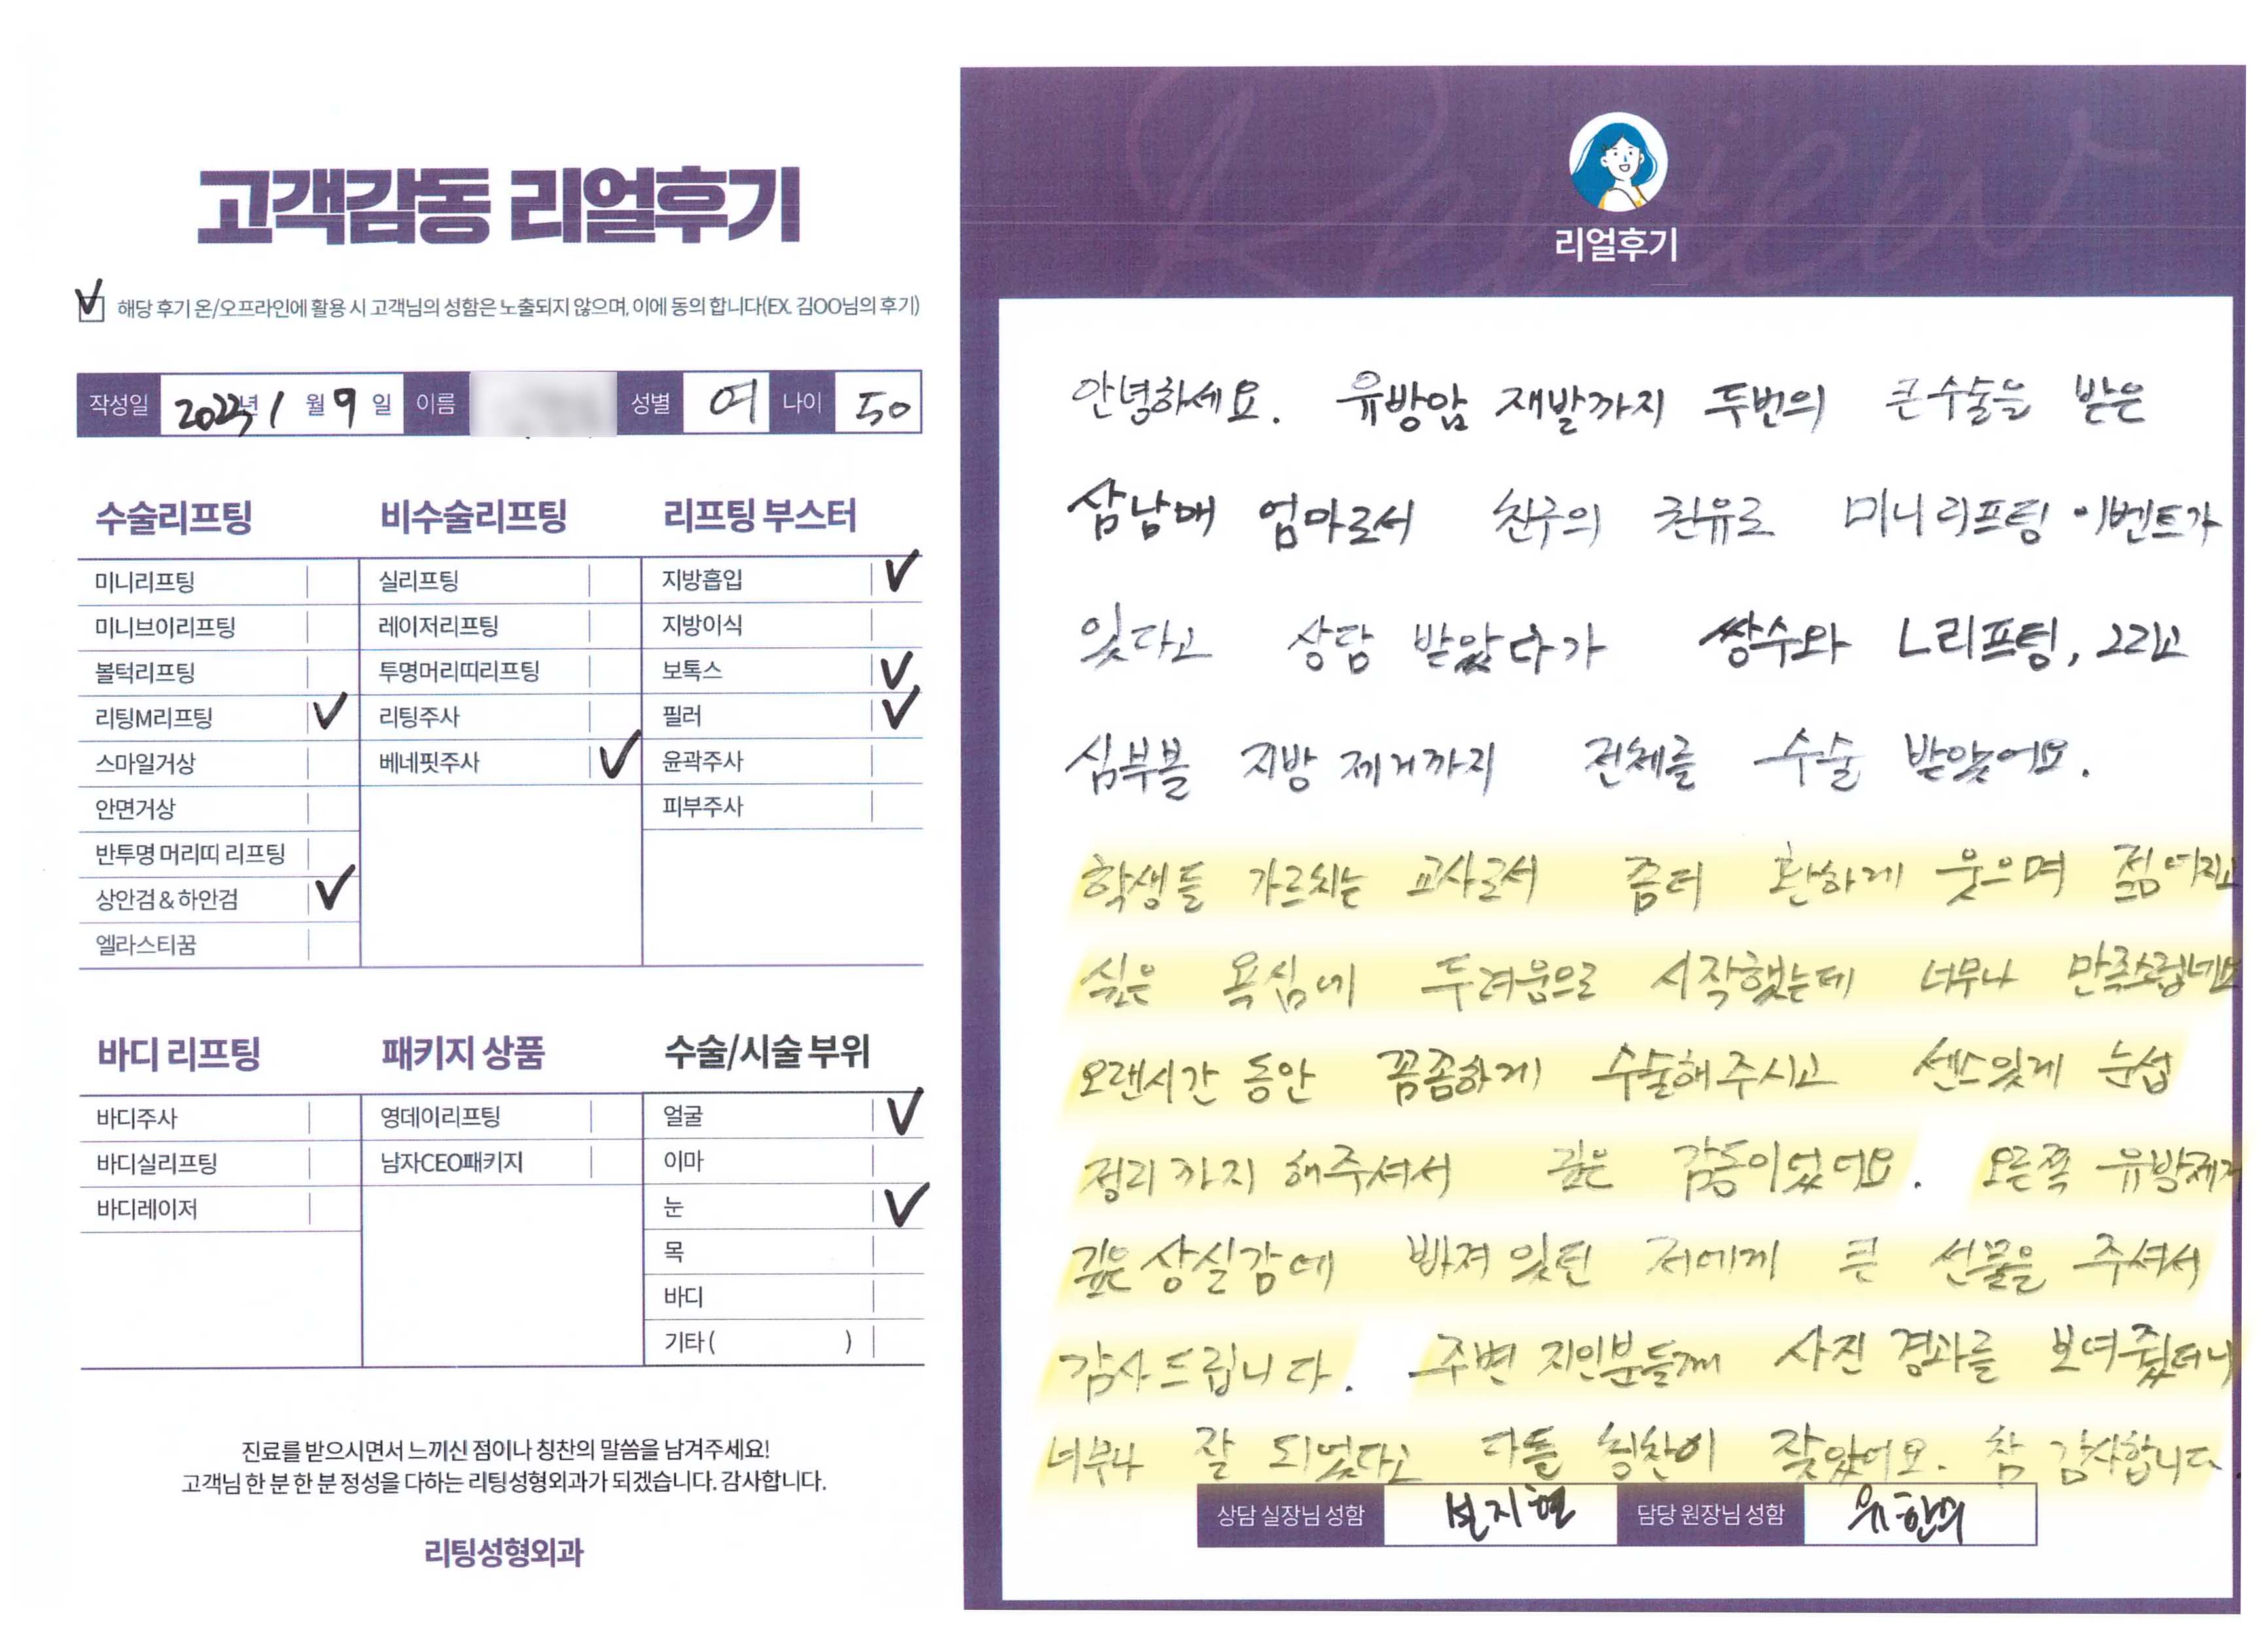 고객감동 리얼후기
✓ 해당 후기 온/오프라인에 활용 시 고객님의 성함은 노출되지 않으며, 이에 동의 합니다(EX. 김OO님의 후기)
작성일 2023년 1월 9일 이름 성별 여 나이 50
수술리프팅
미니리프팅
미니브이리프팅
볼턱리프팅
리팅M리프팅 ✓
스마일거상
안면거상
반투명 머리띠 리프팅
상안검 & 하안검 ✓
엘라스티꿈
비수술리프팅
실리프팅
레이저리프팅
투명머리띠리프팅
리팅주사
베네핏주사 ✓
리프팅 부스터
지방흡입 ✓
지방이식
보톡스 ✓
필러 ✓
윤곽주사
피부주사
바디 리프팅
바디주사
바디실리프팅
바디레이저
패키지 상품
영데이리프팅
남자CEO패키지
수술/시술 부위
얼굴 ✓
이마
눈 ✓
목
바디
기타 ( )
진료를 받으시면서 느끼신 점이나 칭찬의 말씀을 남겨주세요!
고객님 한 분 한 분 정성을 다하는 리팅성형외과가 되겠습니다. 감사합니다.
리팅성형외과
Review
리얼후기
안녕하세요. 유방암 재발까지 두번의 큰수술을 받은
삼남매 엄마로서 친구의 권유로 미니리프팅 이벤트가
있다고 상담 받았다가 쌍수와 L리프팅, 그리고
심부볼 지방 제거까지 전체를 수술 받았어요.
학생들 가르치는 교사로서 좀더 환하게 웃으며 젊어지고
싶은 욕심에 두려움으로 시작했는데 너무나 만족스럽네요
오랜시간 동안 꼼꼼하게 수술해주시고 센스있게 눈썹
정리까지 해주셔서 깊은 감동이었어요. 오른쪽 유방제거
깊은 상실감에 빠져 있던 저에게 큰 선물을 주셔서
감사드립니다. 주변 지인분들께 사진 경과를 보여줬더니
너무나 잘 되었다고 다들 칭찬이 잦았어요. 참 감사합니다.
상담 실장님 성함 지현 담당 원장님 성함 유한뫼